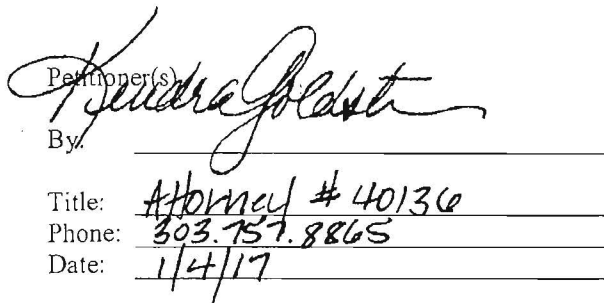 Petitioner(s)
Kendra Goldst
By:
Title: Attorney # 40136
Phone: 303.757.8865
Date: 1/4/17